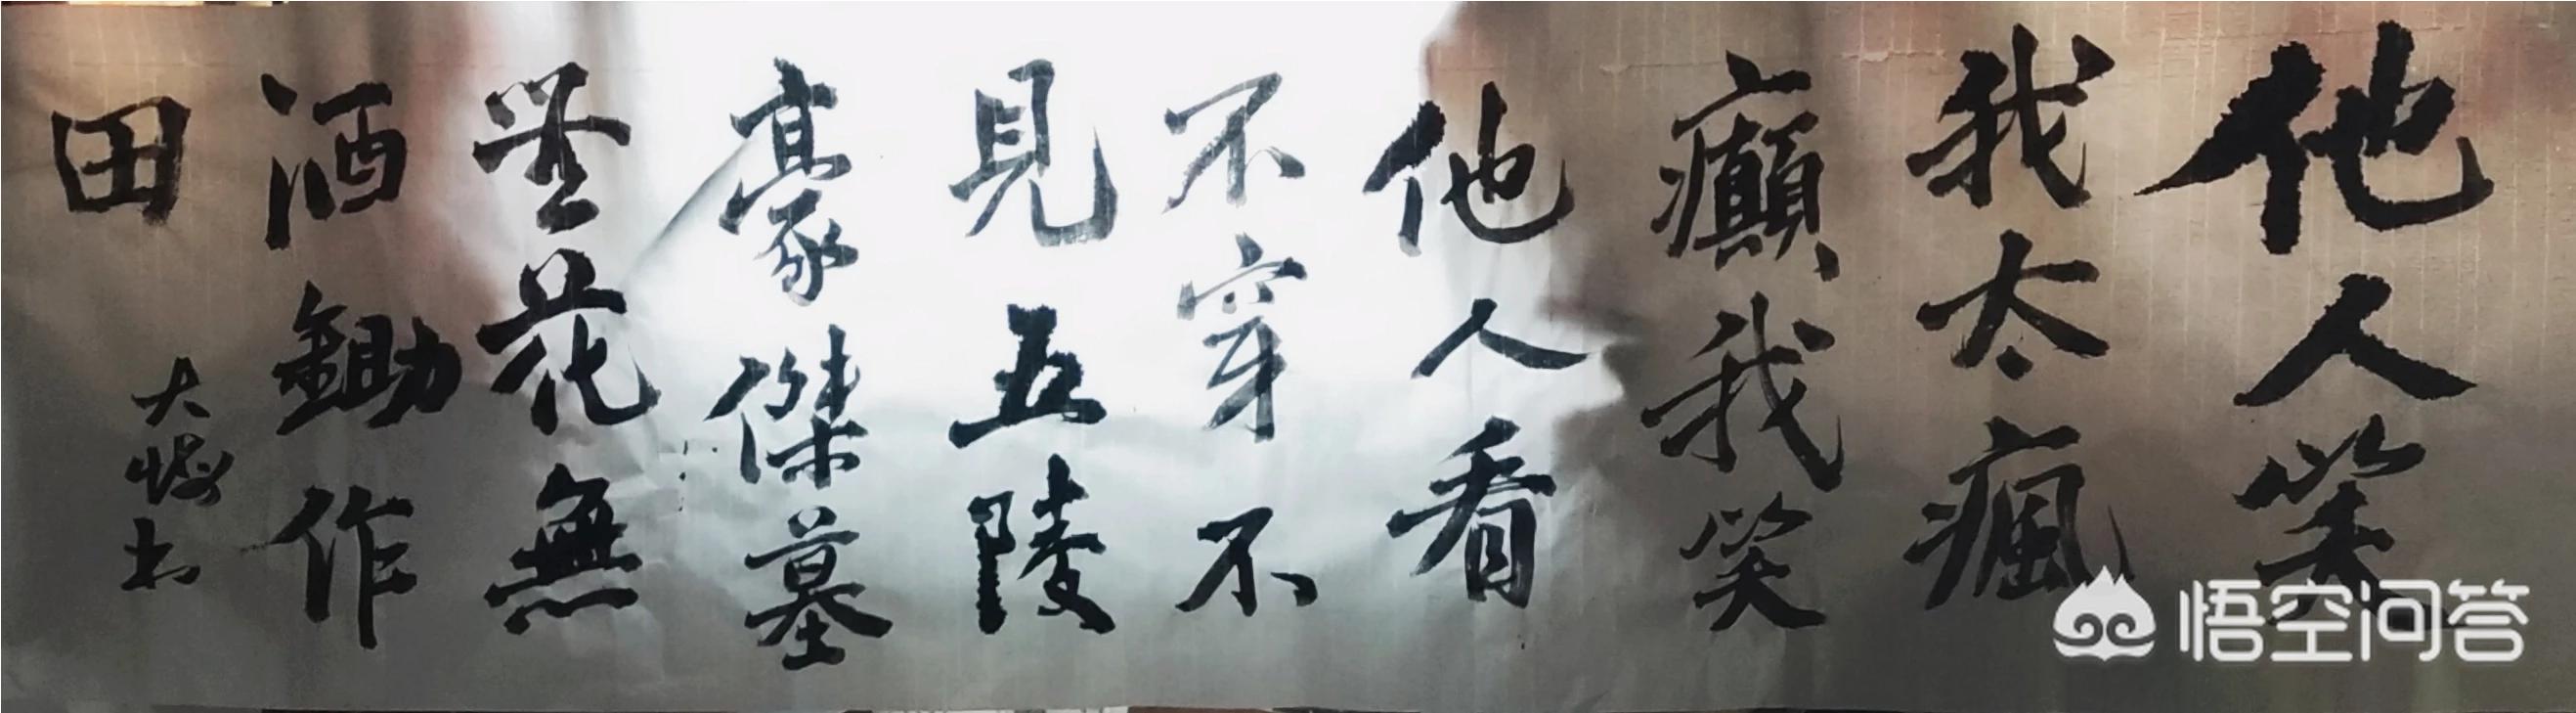 他人笑
我太瘋
癲我笑
他人看
不穿不
見五陵
豪傑墓
無花無
酒鋤作
田
大 书
悟空问答